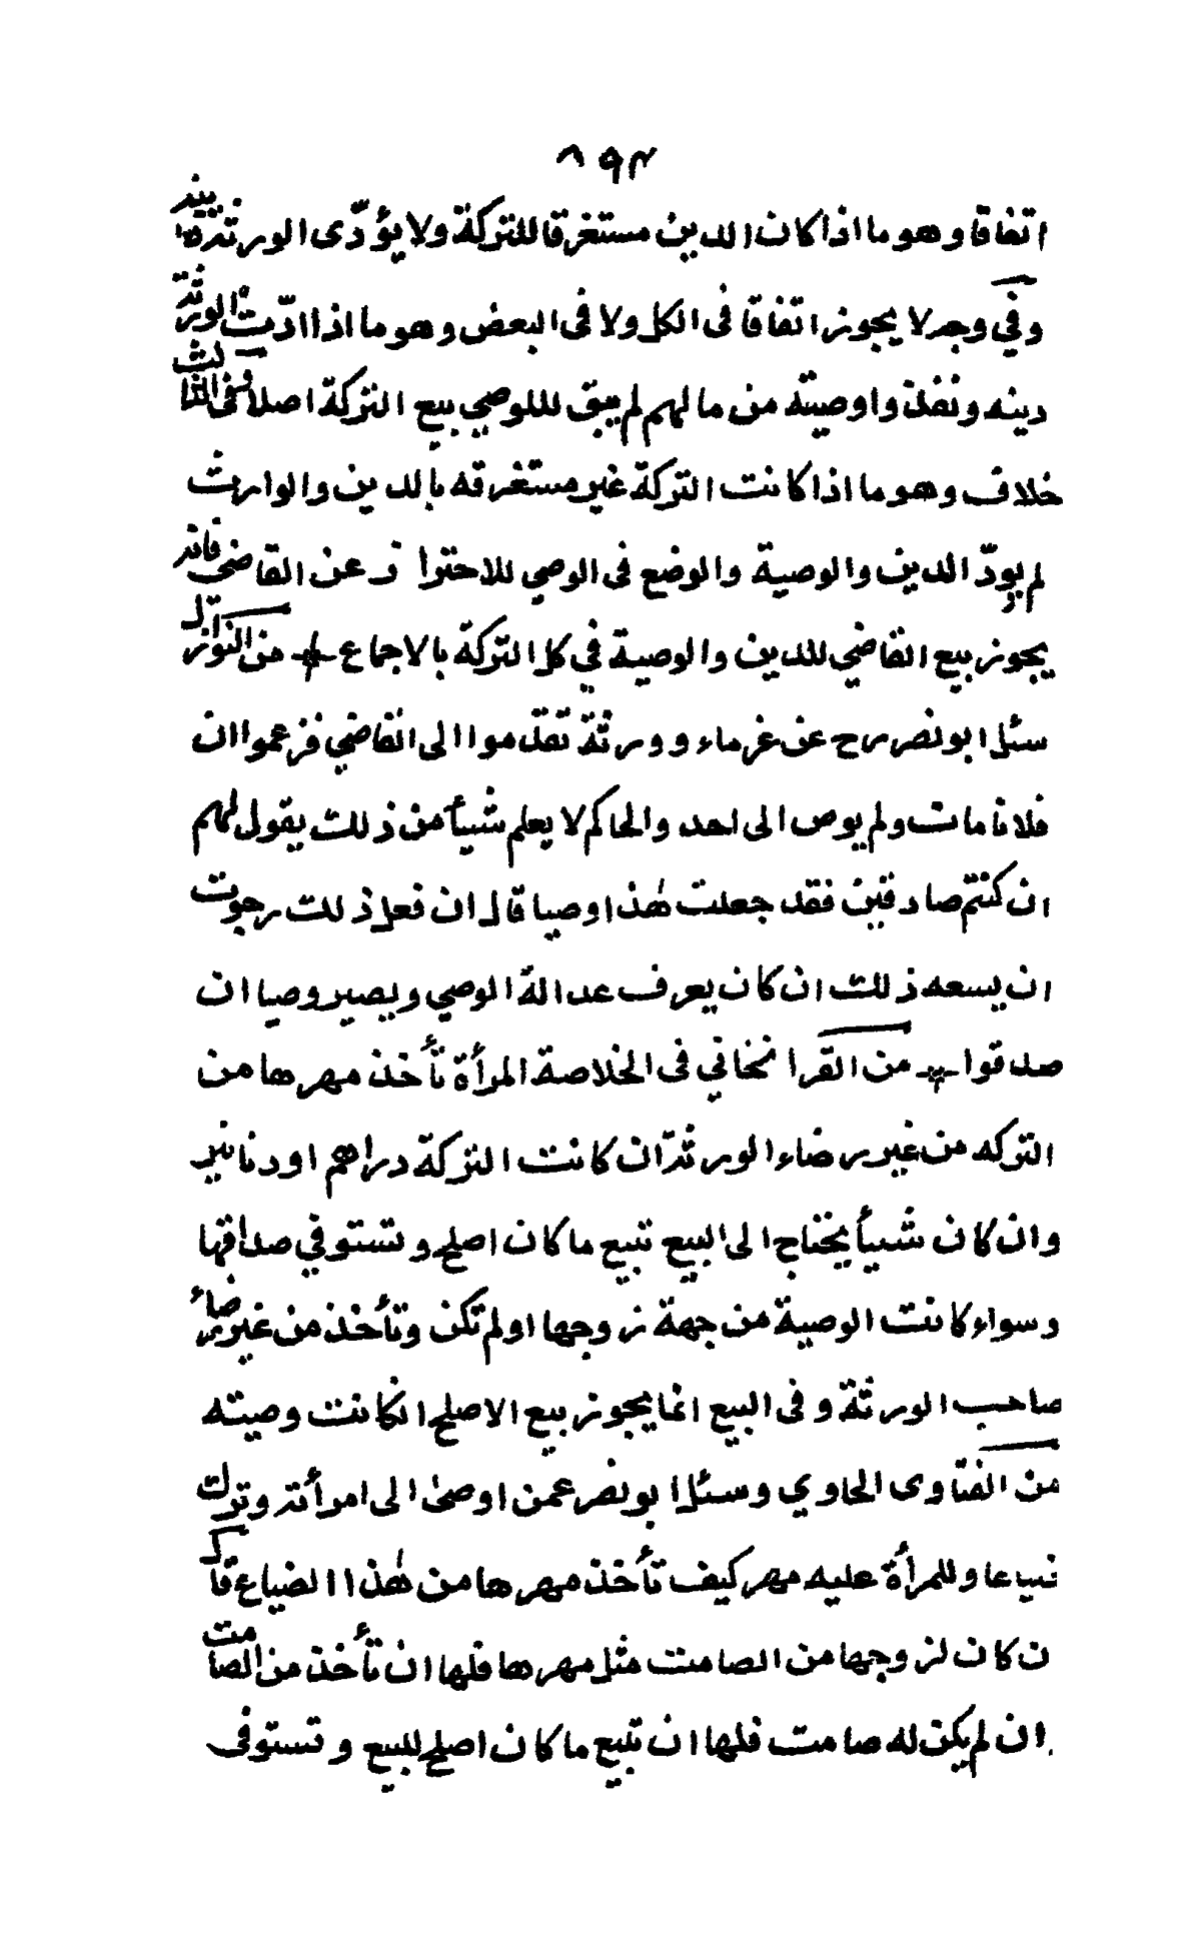 ٨٩٣
اتفاقا وهو ما اذا كان الدين مستغرقا للتركة ولا يؤدّى الورثة
وفي وجه لا يجوز اتفاقا فى الكل ولا فى البعض وهو ما اذا ادّت الورثة
دينه ونفذوا وصيته من مالهم لم يبق للوصي بيع التركة اصلا وفى الثالث
خلاف وهو ما اذا كانت التركة غير مستغرقه بالدين والوارث
لم يودّ الدين والوصية والوضع فى الوصي للاحتراز عن القاضي فانه
يجوز بيع القاضي للدين والوصية في كل التركة بالاجماع من النوازل
سئل ابو نصر رح عن غرماء وورثة تقدموا الى القاضي فزعموا ان
فلانا مات ولم يوص الى احد والحاكم لا يعلم شيأ من ذلك يقول لهم
ان كنتم صادقين فقد جعلت هٰذا وصيا قال ان فعل ذلك رجوت
ان يسعه ذلك ان كان يعرف عدالة الوصي ويصير وصيا ان
صدقوا من القراخاني فى الخلاصة المرأة تأخذ مهرها من
التركه من غير رضاء الورثة ان كانت التركة دراهم او دنانير
وان كان شيأ يحتاج الى البيع تبيع ما كان اصلح وتستوفي صداقها
وسواء كانت الوصية من جهة زوجها او لم تكن وتأخذ من غير رضاء
صاحب الورثة وفى البيع انما يجوز بيع الاصلح ان كانت وصيته
من الفتاوى الحاوي وسئل ابو نصر عمن اوصىٰ الى امرأته وترك
ضياعا وللمرأة عليه مهر كيف تأخذ مهرها من هٰذا الضياع قال
ن كان لزوجها من الصامت مثل مهرها فلها ان تأخذ من الصامت
ان لم يكن له صامت فلها ان تبيع ما كان اصلح للبيع وتستوفى